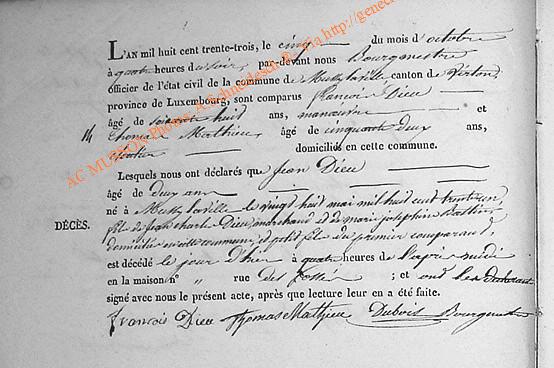 L'AN mil huit cent trente-trois, le cinq du mois d'octobre
à quatre heures du soir, par-devant nous Bourgmestre
officier de l'état civil de la commune de Mussy la ville canton de Virton,
province de Luxembourg, sont comparus francois Dieu
âgé de soixante huit ans, manoeuvre et
14 Thomas Mathieu, âgé de cinquante deux ans,
domiciliés en cette commune.
Lesquels nous ont déclarés que Jean Dieu
âgé de deux ans
né à Mussy la ville le vingt huit mai mil huit cent trente un
DÉCÈS. fils de Jean Charles Dieu, marchand et de marie josephine
domiciliés en cette commune, et petit fils du premier comparant,
est décédé le jour d'hier à quatre heures de l'après midi
en la maison n° " rue des fossés ; et ont les déclarant
signé avec nous le présent acte, après que lecture leur en a été faite.
francois Dieu Thomas Mathieu Dubois Bourgmestre
AC MUSSON Photos A.Schneidesch-Paglia http://genec